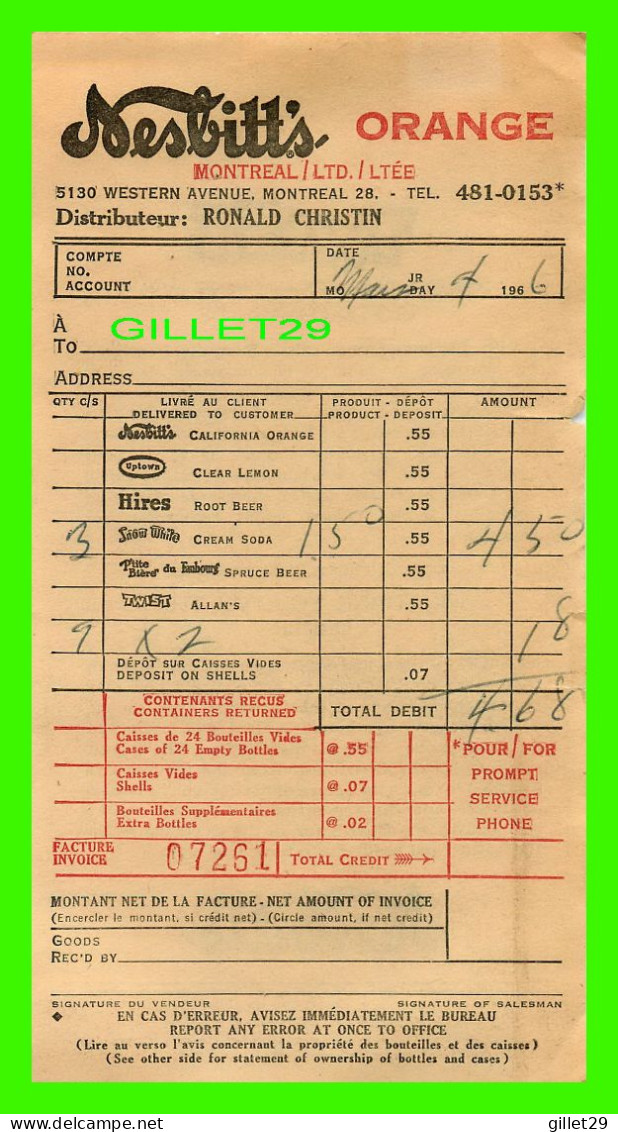 Nesbitt's ORANGE
MONTREAL / LTD. / LTÉE
5130 WESTERN AVENUE, MONTREAL 28. - TEL. 481-0153*
Distributeur: RONALD CHRISTIN
COMPTE NO. ACCOUNT
DATE
MO JR DAY 4 1966
À
TO
GILLET29
ADDRESS
QTY C/S LIVRÉ AU CLIENT PRODUIT - DÉPÔT AMOUNT
DELIVERED TO CUSTOMER PRODUCT - DEPOSIT
Nesbitt's CALIFORNIA ORANGE .55
Uptown CLEAR LEMON .55
Hires ROOT BEER .55
3 Snow White CREAM SODA 150 .55 4 50
P'tite Bière du Faubourg SPRUCE BEER .55
TWIST ALLAN'S .55
9 x 2 18
DÉPÔT SUR CAISSES VIDES
DEPOSIT ON SHELLS .07
CONTENANTS RECUS
CONTAINERS RETURNED TOTAL DEBIT 4 68
Caisses de 24 Bouteilles Vides
Cases of 24 Empty Bottles @ .55
Caisses Vides
Shells @ .07
Bouteilles Supplémentaires
Extra Bottles @ .02
*POUR / FOR
PROMPT
SERVICE
PHONE
FACTURE
INVOICE 07261 TOTAL CREDIT
MONTANT NET DE LA FACTURE - NET AMOUNT OF INVOICE
(Encercler le montant, si crédit net) - (Circle amount, if net credit)
GOODS
REC'D BY
SIGNATURE DU VENDEUR SIGNATURE OF SALESMAN
EN CAS D'ERREUR, AVISEZ IMMÉDIATEMENT LE BUREAU
REPORT ANY ERROR AT ONCE TO OFFICE
(Lire au verso l'avis concernant la propriété des bouteilles et des caisses)
(See other side for statement of ownership of bottles and cases)
delcampe.net
gillet29